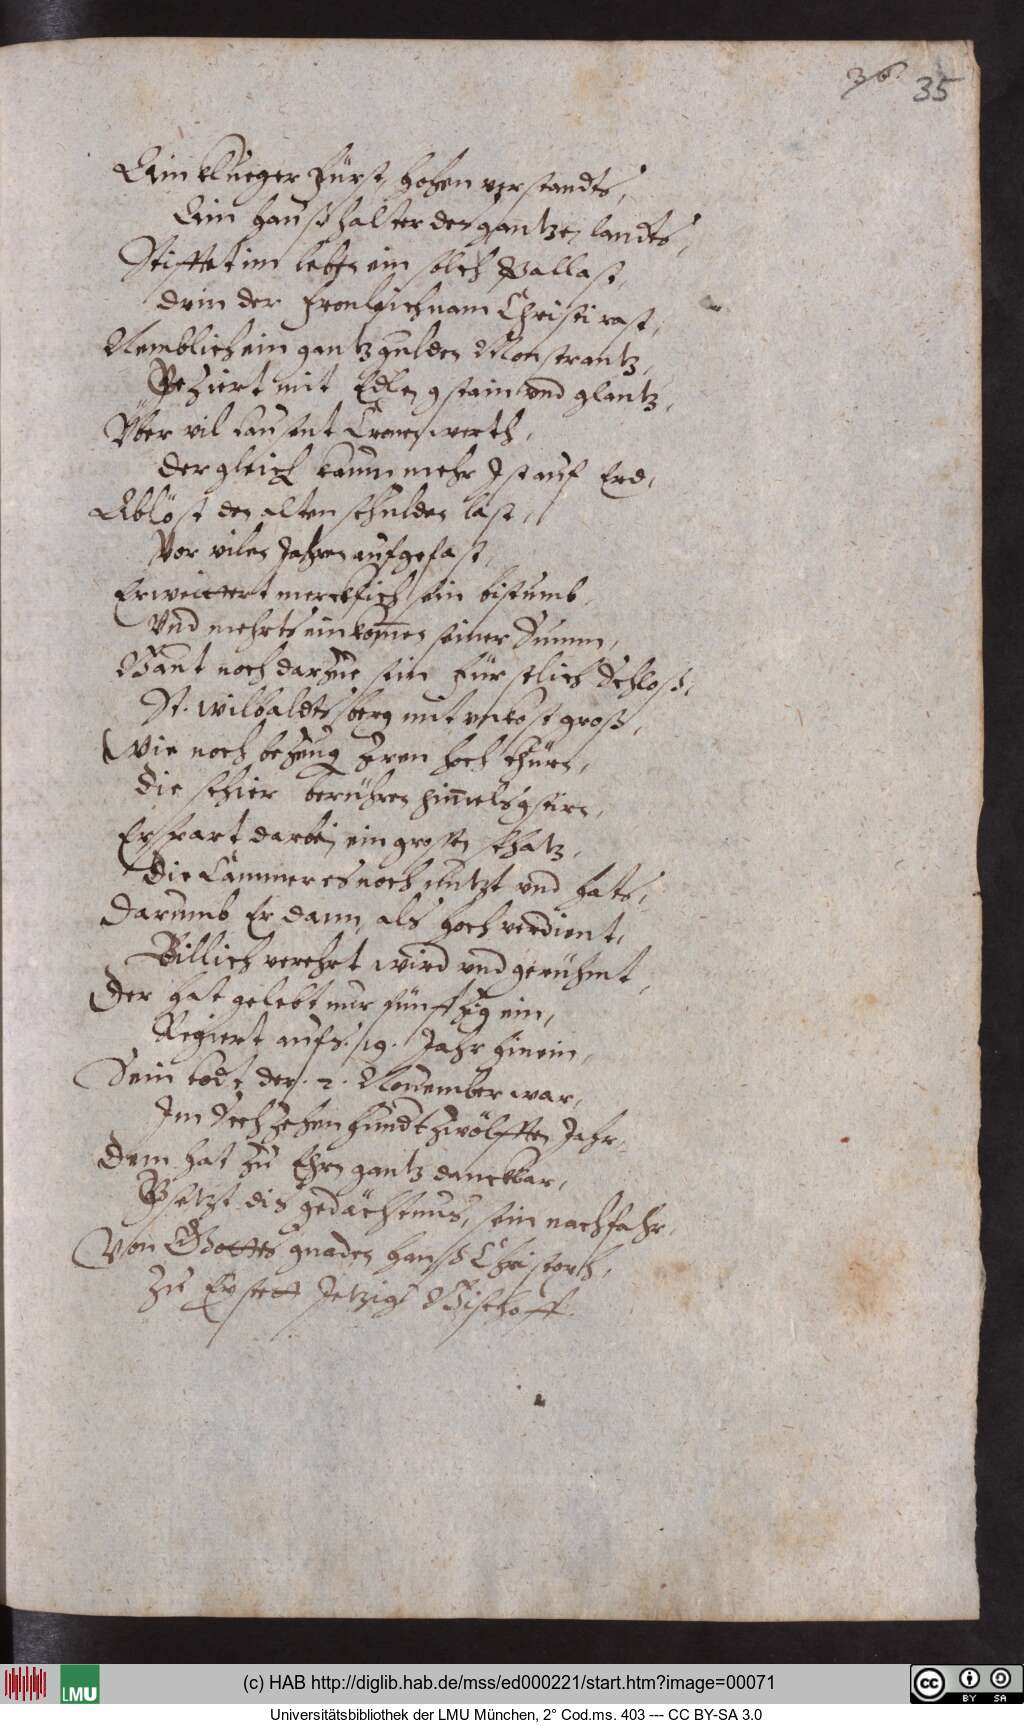 36. 35
Ein klueger Fürst, hohen verstandts,
Ein haußhalter des gantzen landts,
Stifftet im leben ein solch Pallast,
drin der Fronleichnam Christi rast,
Nemblich ein gantz gulden Monstrantz,
Geziert mit Edlen gstain und glantz,
Über vil tausent Cronen werth,
dergleich kaum mehr Ist auf Erd,
Ablöst den alten schulden last,
Vor vilen Jahren aufgefast,
Erweittert mercklich sein bistumb,
Vnd mehrts einkom̄en seiner Summ,
Baut noch darzue sein Fürstlich Schloß,
St. Wilbaldts berg mit unkost groß,
Wie noch bezeug Zwen hoch thürn,
die schier berühren him̄els gstirn,
Erspart darbei ein grossen schatz,
die Cammer es noch nutzt und hats,
Darumb Er dann, als hoch verdient,
Billich verehrt wird vnd gerühmt,
Der hat gelebt nur fünfftzig ein,
Regiert aufs .19. Jahr hinein,
Sein todt den .7. Nouember war,
Im Sechzehenhundt zwölfften Jahr,
Dem hat zu Ehrn gantz danckbar,
Gsetzt dis gedächtnus, sein nachfahr,
Von Gottes gnaden Hanß Christoph,
Zu Eystett Jetziger Bischoff.
(c) HAB http://diglib.hab.de/mss/ed000221/start.htm?image=00071
LMU
cc BY SA
Universitätsbibliothek der LMU München, 2° Cod.ms. 403 --- CC BY-SA 3.0